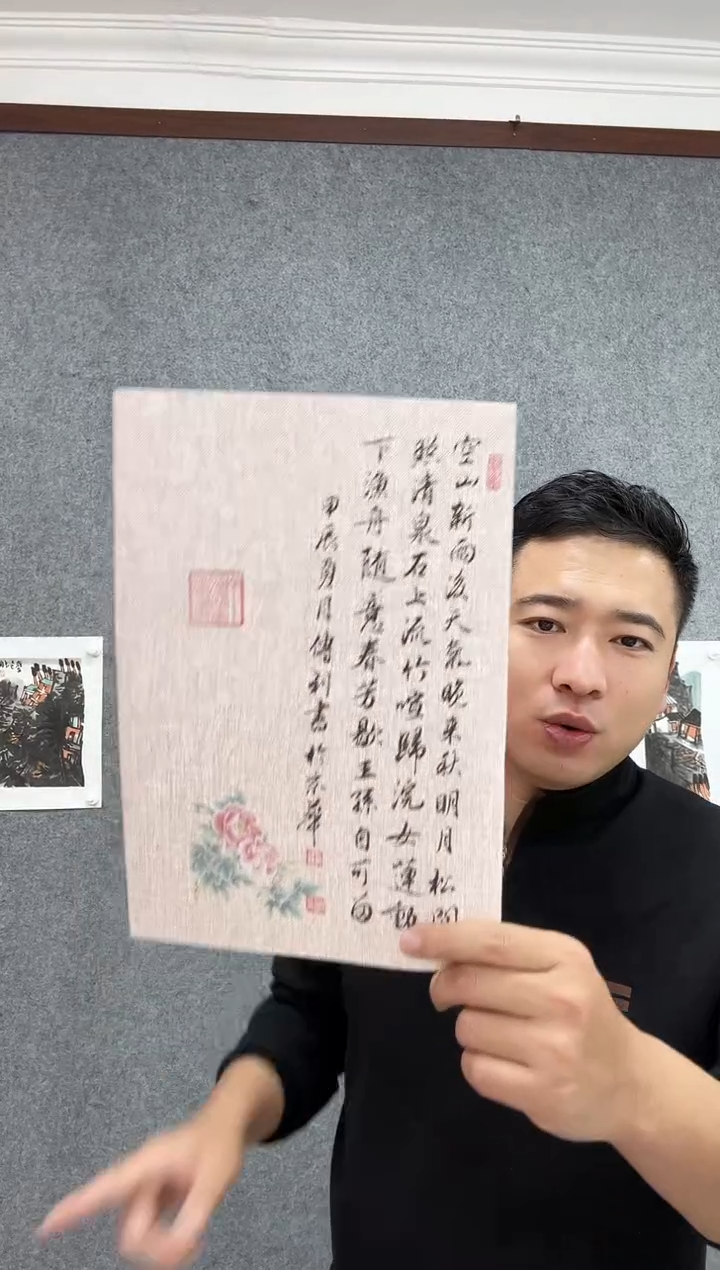 空山新雨後天氣晚來秋明月松間
照清泉石上流竹喧歸浣女蓮動
下漁舟随意春芳歇王孫自可留
甲辰夏月傅利書於京華